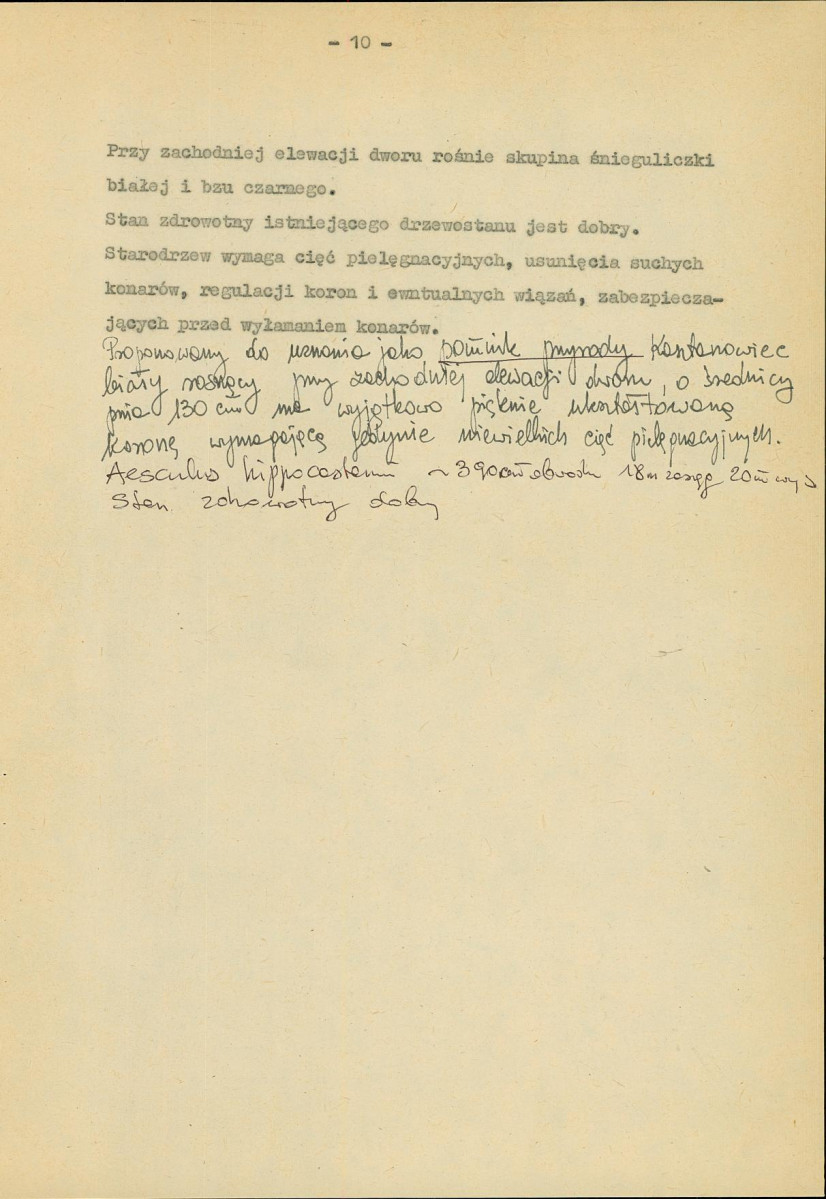 - 10 -
Przy zachodniej elewacji dworu rośnie skupina śnieguliczki
białej i bzu czarnego.
Stan zdrowotny istniejącego drzewostanu jest dobry.
Starodrzew wymaga cięć pielęgnacyjnych, usunięcia suchych
konarów, regulacji koron i ewntualnych wiązań, zabezpiecza-
jących przed wyłamaniem konarów.
Proponowany do uznania jako pomnik przyrody Kasztanowiec
biały rosnący przy zachodniej elewacji dworu, o średnicy
pnia 130 cm ma wyjątkowo pięknie ukształtowaną
koronę wymagającą jedynie niewielkich cięć pielęgnacyjnych.
Aesculus hippocastanum ~ 390 cm obwodu 18 m zasięg 20 m wys
Stan zdrowotny dobry